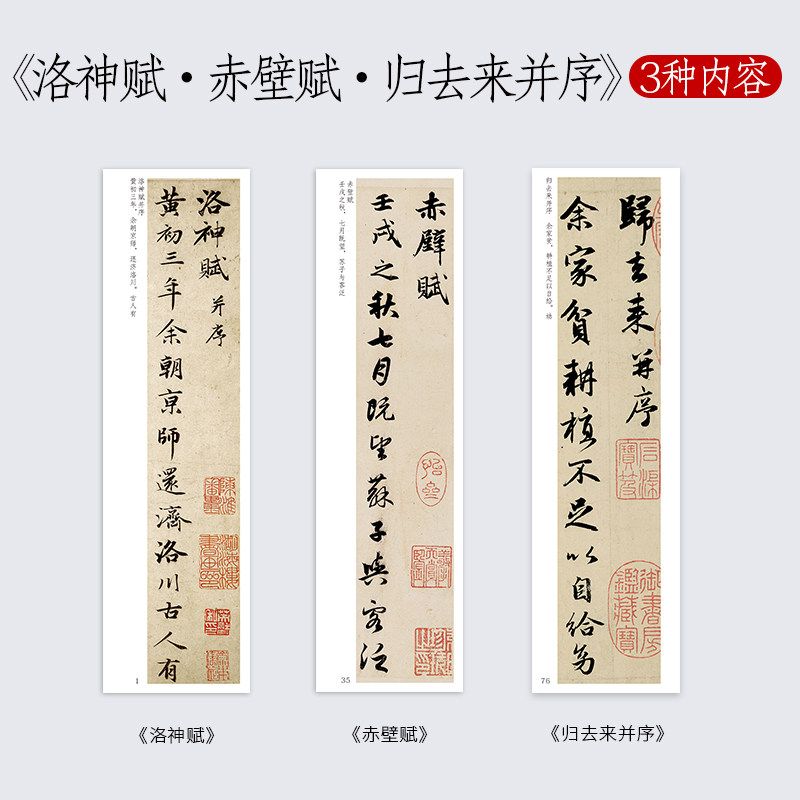 《洛神赋·赤壁赋·归去来并序》
3种内容
洛神赋并序
黄初三年，余朝京师，还济洛川。古人有
洛神賦 并序
黃初三年余朝京師還濟洛川古人有
1
《洛神赋》
赤壁赋
壬戌之秋，七月既望，苏子与客泛
赤壁賦
壬戌之秋七月既望蘇子與客泛
35
《赤壁赋》
归去来并序 余家贫，耕植不足以自给。幼
歸去来并序
余家貧耕植不足以自給幼
石渠寶笈
御書房鑑藏寶
76
《归去来并序》